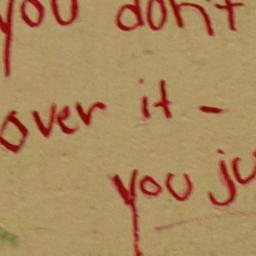 you don't
over it -
you ju